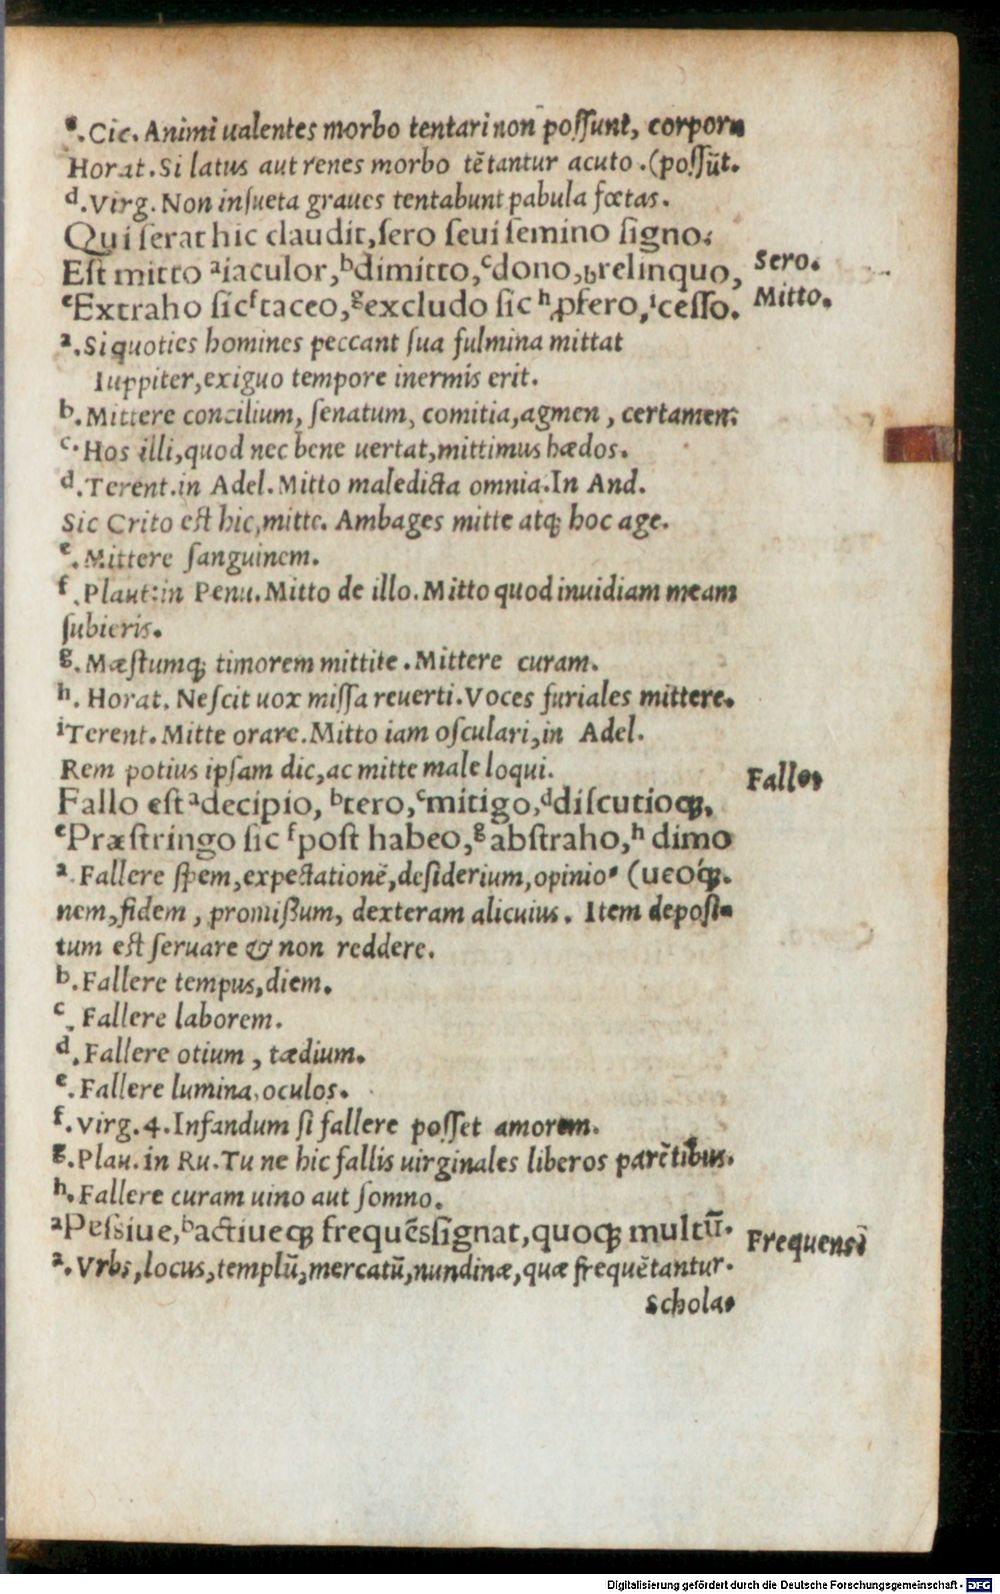 ᵉ. Cic. Animi ualentes morbo tentari non possunt, corpora
Horat. Si latus aut renes morbo tẽtantur acuto. (possũt.
ᵈ. Virg. Non insueta graues tentabunt pabula fœtas.
Qui serat hic claudit, sero seui semino signo.
Sero.
Est mitto ᵃiaculor, ᵇdimitto, ᶜdono, ᵈrelinquo,
Mitto.
ᵉExtraho sic ᶠtaceo, ᵍexcludo sic ʰ ꝓfero, ⁱcesso.
ᵃ. Si quoties homines peccant sua fulmina mittat
Iuppiter, exiguo tempore inermis erit.
ᵇ. Mittere concilium, senatum, comitia, agmen, certamen.
ᶜ. Hos illi, quod nec bene uertat, mittimus hædos.
ᵈ. Terent. in Adel. Mitto maledicta omnia. In And.
Sic Crito est hic, mitte. Ambages mitte atq; hoc age.
ᵉ. Mittere sanguinem.
ᶠ. Plaut: in Penu. Mitto de illo. Mitto quod inuidiam meam
subieris.
ᵍ. Mæstumq; timorem mittite. Mittere curam.
ʰ. Horat. Nescit uox missa reuerti. Voces furiales mittere.
ⁱTerent. Mitte orare. Mitto iam osculari, in Adel.
Rem potius ipsam dic, ac mitte male loqui.
Fallo.
Fallo est ᵃdecipio, ᵇtero, ᶜmitigo, ᵈdiscutioq;,
ᵉPræstringo sic ᶠpost habeo, ᵍabstraho, ʰ dimo
ᵃ. Fallere spem, expectationẽ, desiderium, opinio- (ueoq́;.
nem, fidem, promißum, dexteram alicuius. Item deposi-
tum est seruare & non reddere.
ᵇ. Fallere tempus, diem.
ᶜ. Fallere laborem.
ᵈ. Fallere otium, tædium.
ᵉ. Fallere lumina, oculos.
ᶠ. Virg. 4. Infandum si fallere posset amorem.
ᵍ. Plau. in Ru. Tu ne hic fallis uirginales liberos parẽtibus.
ʰ. Fallere curam uino aut somno.
ᵃPessiue, ᵇactiueq; frequẽs signat, quoq; multũ.
ᵃ. Vrbs, locus, templũ, mercatũ, nundinæ, quæ frequẽtantur.
Schola.
Digitalisierung gefördert durch die Deutsche Forschungsgemeinschaft - DFG